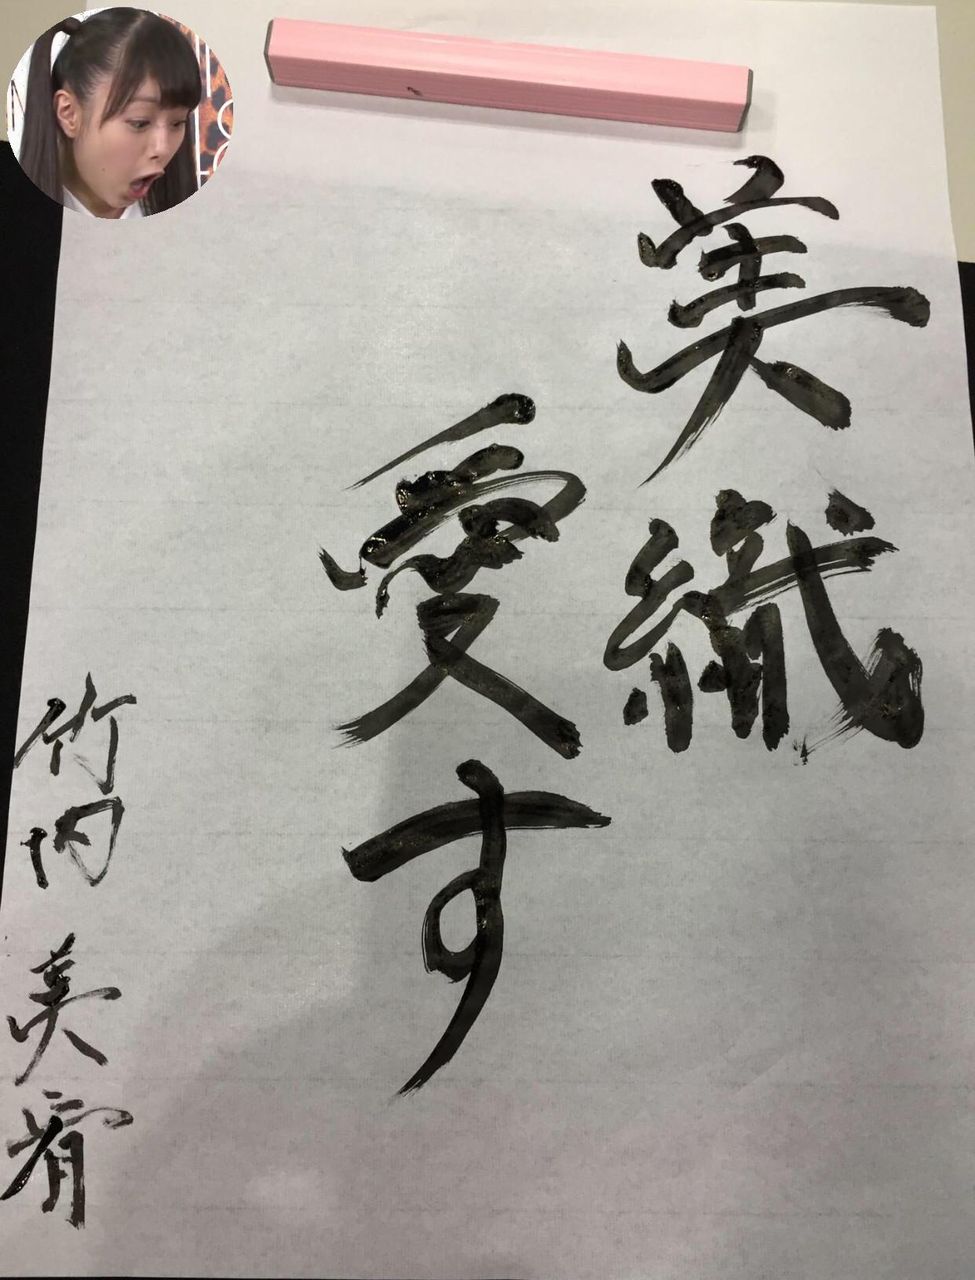 美織
愛す
竹内美宥